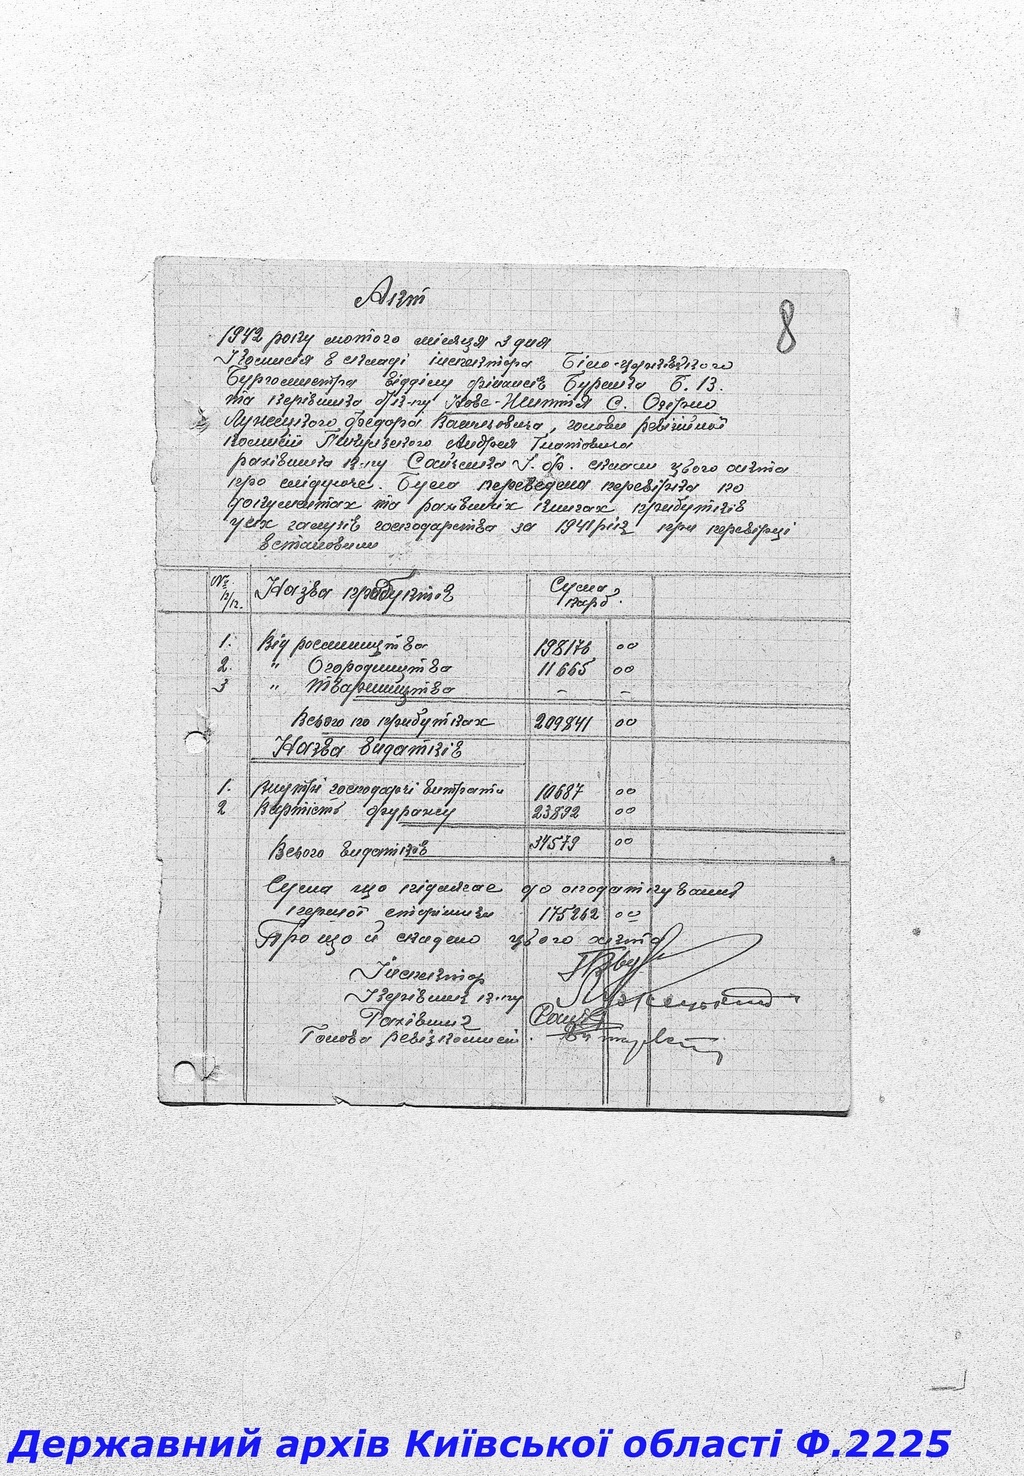 Акт
8
1942 року лютого місяця 3 дня
Комисія в складі інспектора Біло-церківського
Бургомистра відділу фінансів Б. В.
та керівника г/к-пу Нове-Життя С. Озірно
Федора Васильовича, голови ревізійної
комисії Андрея Гнатовича
рахівника к-пу І. Ф. склали цього акта
про слідуюче. Була переведена перевірка по
документах та рахівних книгах прибутків
усіх галузів господарства за 1941 рік при перевірці
встановили
№№ п/п. Назва прибутків Сума карб.
1. Від рослинництва 198176 00
2. " Огородництва 11665 00
3 " тваринництва – –
Всього по прибутках 209841 00
Назва видатків
1. Внутрі господарчі витрати 10687 00
2 Вартість фуражу 23892 00
Всього видатків 34579 00
Сума що підлягає до оподаткування
першої сторінки 175262 00
Про що й складено цього акта
Інспектор
Керівник к-пу
Рахівник
Голова ревізкомисії
Державний архів Київської області Ф.2225